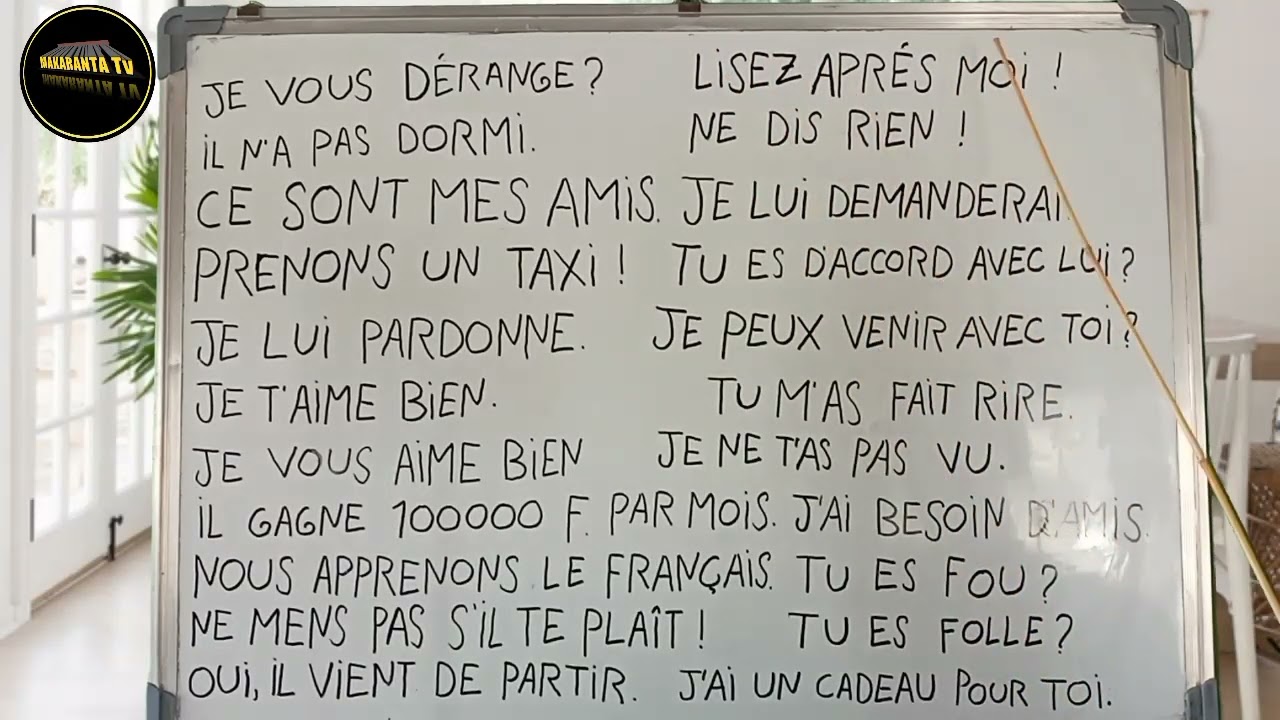 MAKARANTA TV
JE VOUS DÉRANGE? LISEZ APRÉS MOI !
IL N'A PAS DORMI. NE DIS RIEN !
CE SONT MES AMIS. JE LUI DEMANDERAI.
PRENONS UN TAXI ! TU ES D'ACCORD AVEC LUI ?
JE LUI PARDONNE. JE PEUX VENIR AVEC TOI ?
JE T'AIME BIEN. TU M'AS FAIT RIRE.
JE VOUS AIME BIEN JE NE T'AS PAS VU.
IL GAGNE 100000 F. PAR MOIS. J'AI BESOIN D'AMIS.
NOUS APPRENONS LE FRANÇAIS. TU ES FOU ?
NE MENS PAS S'IL TE PLAÎT ! TU ES FOLLE ?
OUI, IL VIENT DE PARTIR. J'AI UN CADEAU POUR TOI.